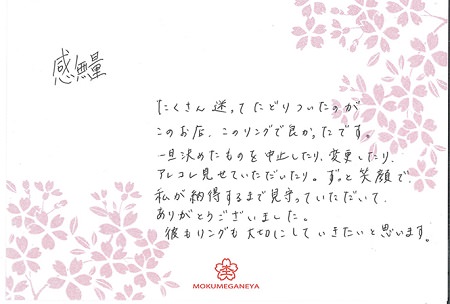 感無量
たくさん迷ってたどりついたのが
このお店、このリングで良かったです。
一旦決めたものを中止したり、変更したり、
アレコレ見せていただいたり。ずっと笑顔で、
私が納得するまで見守っていただいて、
ありがとうございました。
彼もリングも大切にしていきたいと思います。
MOKUMEGANEYA